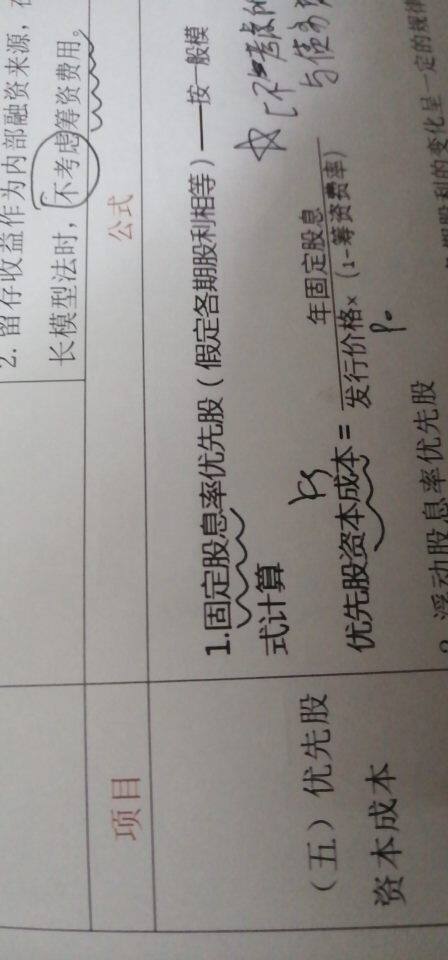 2. 留存收益作为内部融资来源，
长模型法时，不考虑筹资费用。
项目
公式
（五）优先股
资本成本
1.固定股息率优先股（假定各期股利相等）——按一般模
式计算
☆ [不考虑
与债务
Ks
优先股资本成本＝年固定股息
发行价格×（1-筹资费率）
P₀
浮动股息率优先股
股利的变化是一定的规律